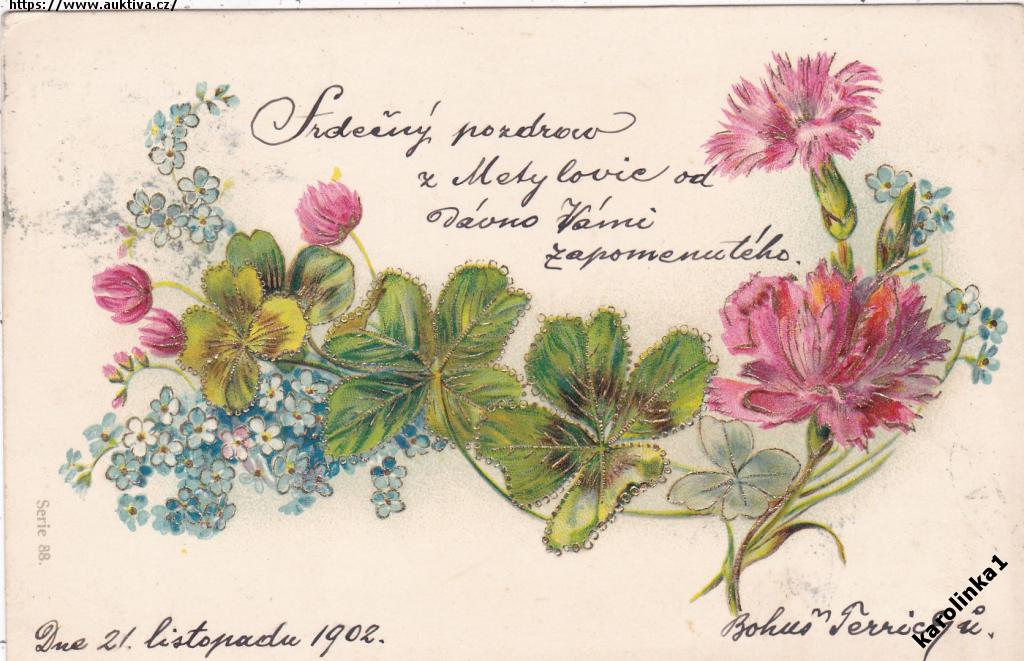 https://www.auktiva.cz/
Srdečný pozdrow
z Metylovic od
Dávno Vámi
zapomenutého.
Serie 88.
Dne 21. listopadu 1902.
Bohuš
karolinka1